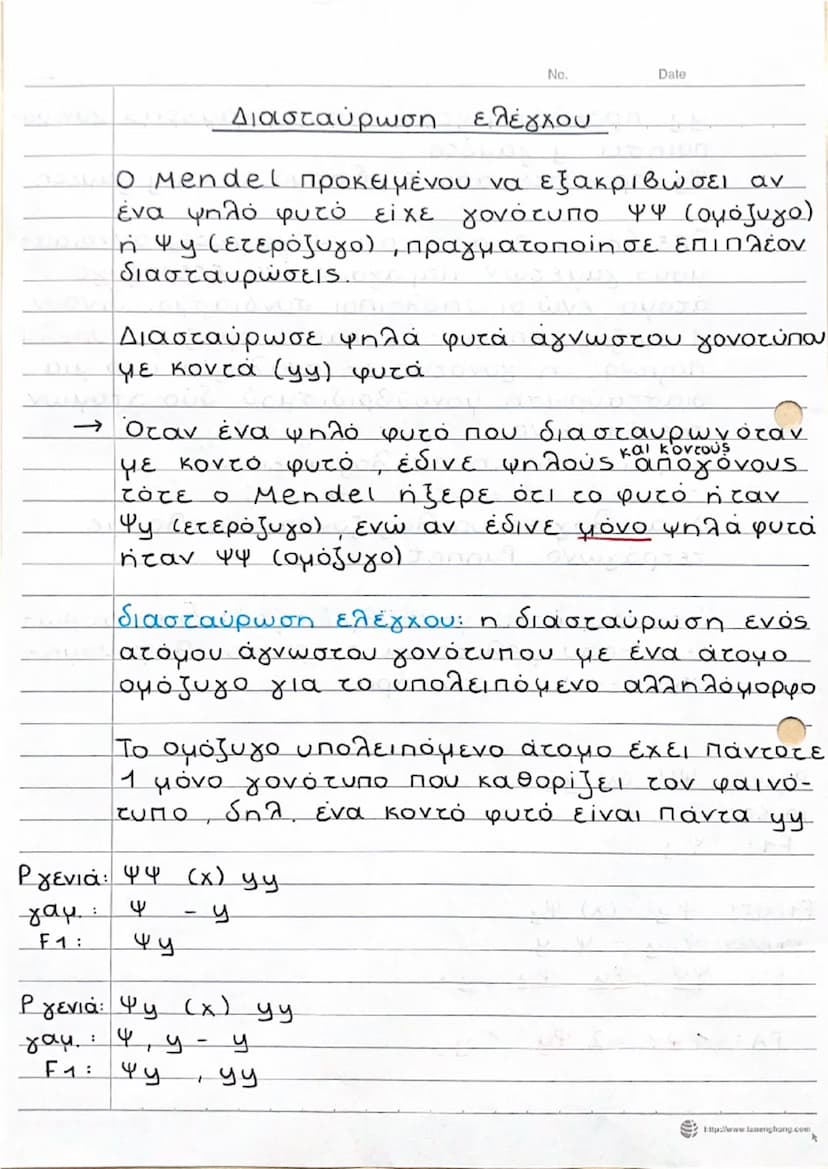 No. Date
Διασταύρωση ελέγχου
Ο Mendel προκειμένου να εξακριβώσει αν
ένα ψηλό φυτό είχε γονότυπο ΨΨ (ομόζυγο)
ή Ψy (ετερόζυγο), πραγματοποίησε επιπλέον
διασταυρώσεις.
Διασταύρωσε ψηλά φυτά άγνωστου γονοτύπου
με κοντά (yy) φυτά
→ Όταν ένα ψηλό φυτό που διασταυρωνόταν
με κοντό φυτό, έδινε ψηλούς και κοντούς απογόνους
τότε ο Mendel ήξερε ότι το φυτό ήταν
Ψy (ετερόζυγο), ενώ αν έδινε μόνο ψηλά φυτά
ήταν ΨΨ (ομόζυγο)
διασταύρωση ελέγχου: η διασταύρωση ενός
ατόμου άγνωστου γονότυπου με ένα άτομο
ομόζυγο για το υπολειπόμενο αλληλόμορφο
Το ομόζυγο υπολειπόμενο άτομο έχει πάντοτε
1 μόνο γονότυπο που καθορίζει τον φαινό-
τυπο, δηλ. ένα κοντό φυτό είναι πάντα yy
P γενιά: ΨΨ (x) yy
γαμ. : Ψ - y
F1: Ψy
P γενιά: Ψy (x) yy
γαμ. : Ψ, y - y
F1: Ψy , yy